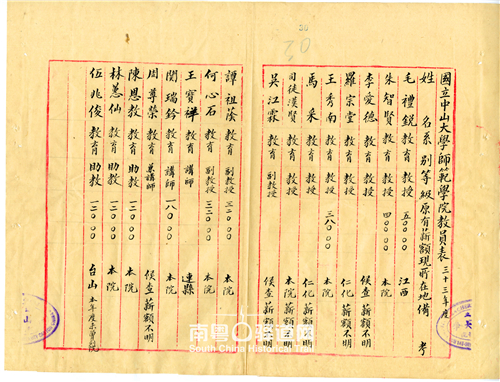 50
70
國立中山大學師範學院教員表 三十三年度
姓名 系別 等級 原有薪額 現所在地 備考
毛禮銳 教育 教授 五〇〇〇〇 江西
朱智賢 教育 教授 四〇〇〇〇 本院
李愛德 教育 教授 候查薪額不明
羅宗堂 教育 教授 仁化 薪額不明
王秀南 教育 教授 三八〇〇〇 本院
馬采 教育 教授 仁化 薪額不明
司徒漢賢 教育 教授 本院 薪額不明
吳江霖 教育 副教授 候查薪額不明
譚祖蔭 教育 副教授 三二〇〇〇 本院
何心石 教育 副教授 三二〇〇〇 本院
王寶祥 教育 講師 連縣
関瑞鈐 教育 講師 一八〇〇〇 本院
周尊榮 教育 兼講師 候查薪額不明
陳恩教 教育 助教 一二〇〇〇 本院
林蕙仙 教育 助教 一二〇〇〇 本院
伍兆俊 教育 助教 一二〇〇〇 台山 本年度未算院
南粤 資源
South China Historical